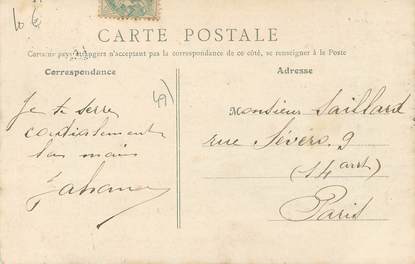 10 €
CARTE POSTALE
Certains pays étrangers n'acceptant pas la correspondance de ce côté, se renseigner à la Poste
Correspondance
Adresse
49)
Je te serre
cordialement
la main
Monsieur Saillard
rue Sévero. 9
(14 arrt.)
Paris